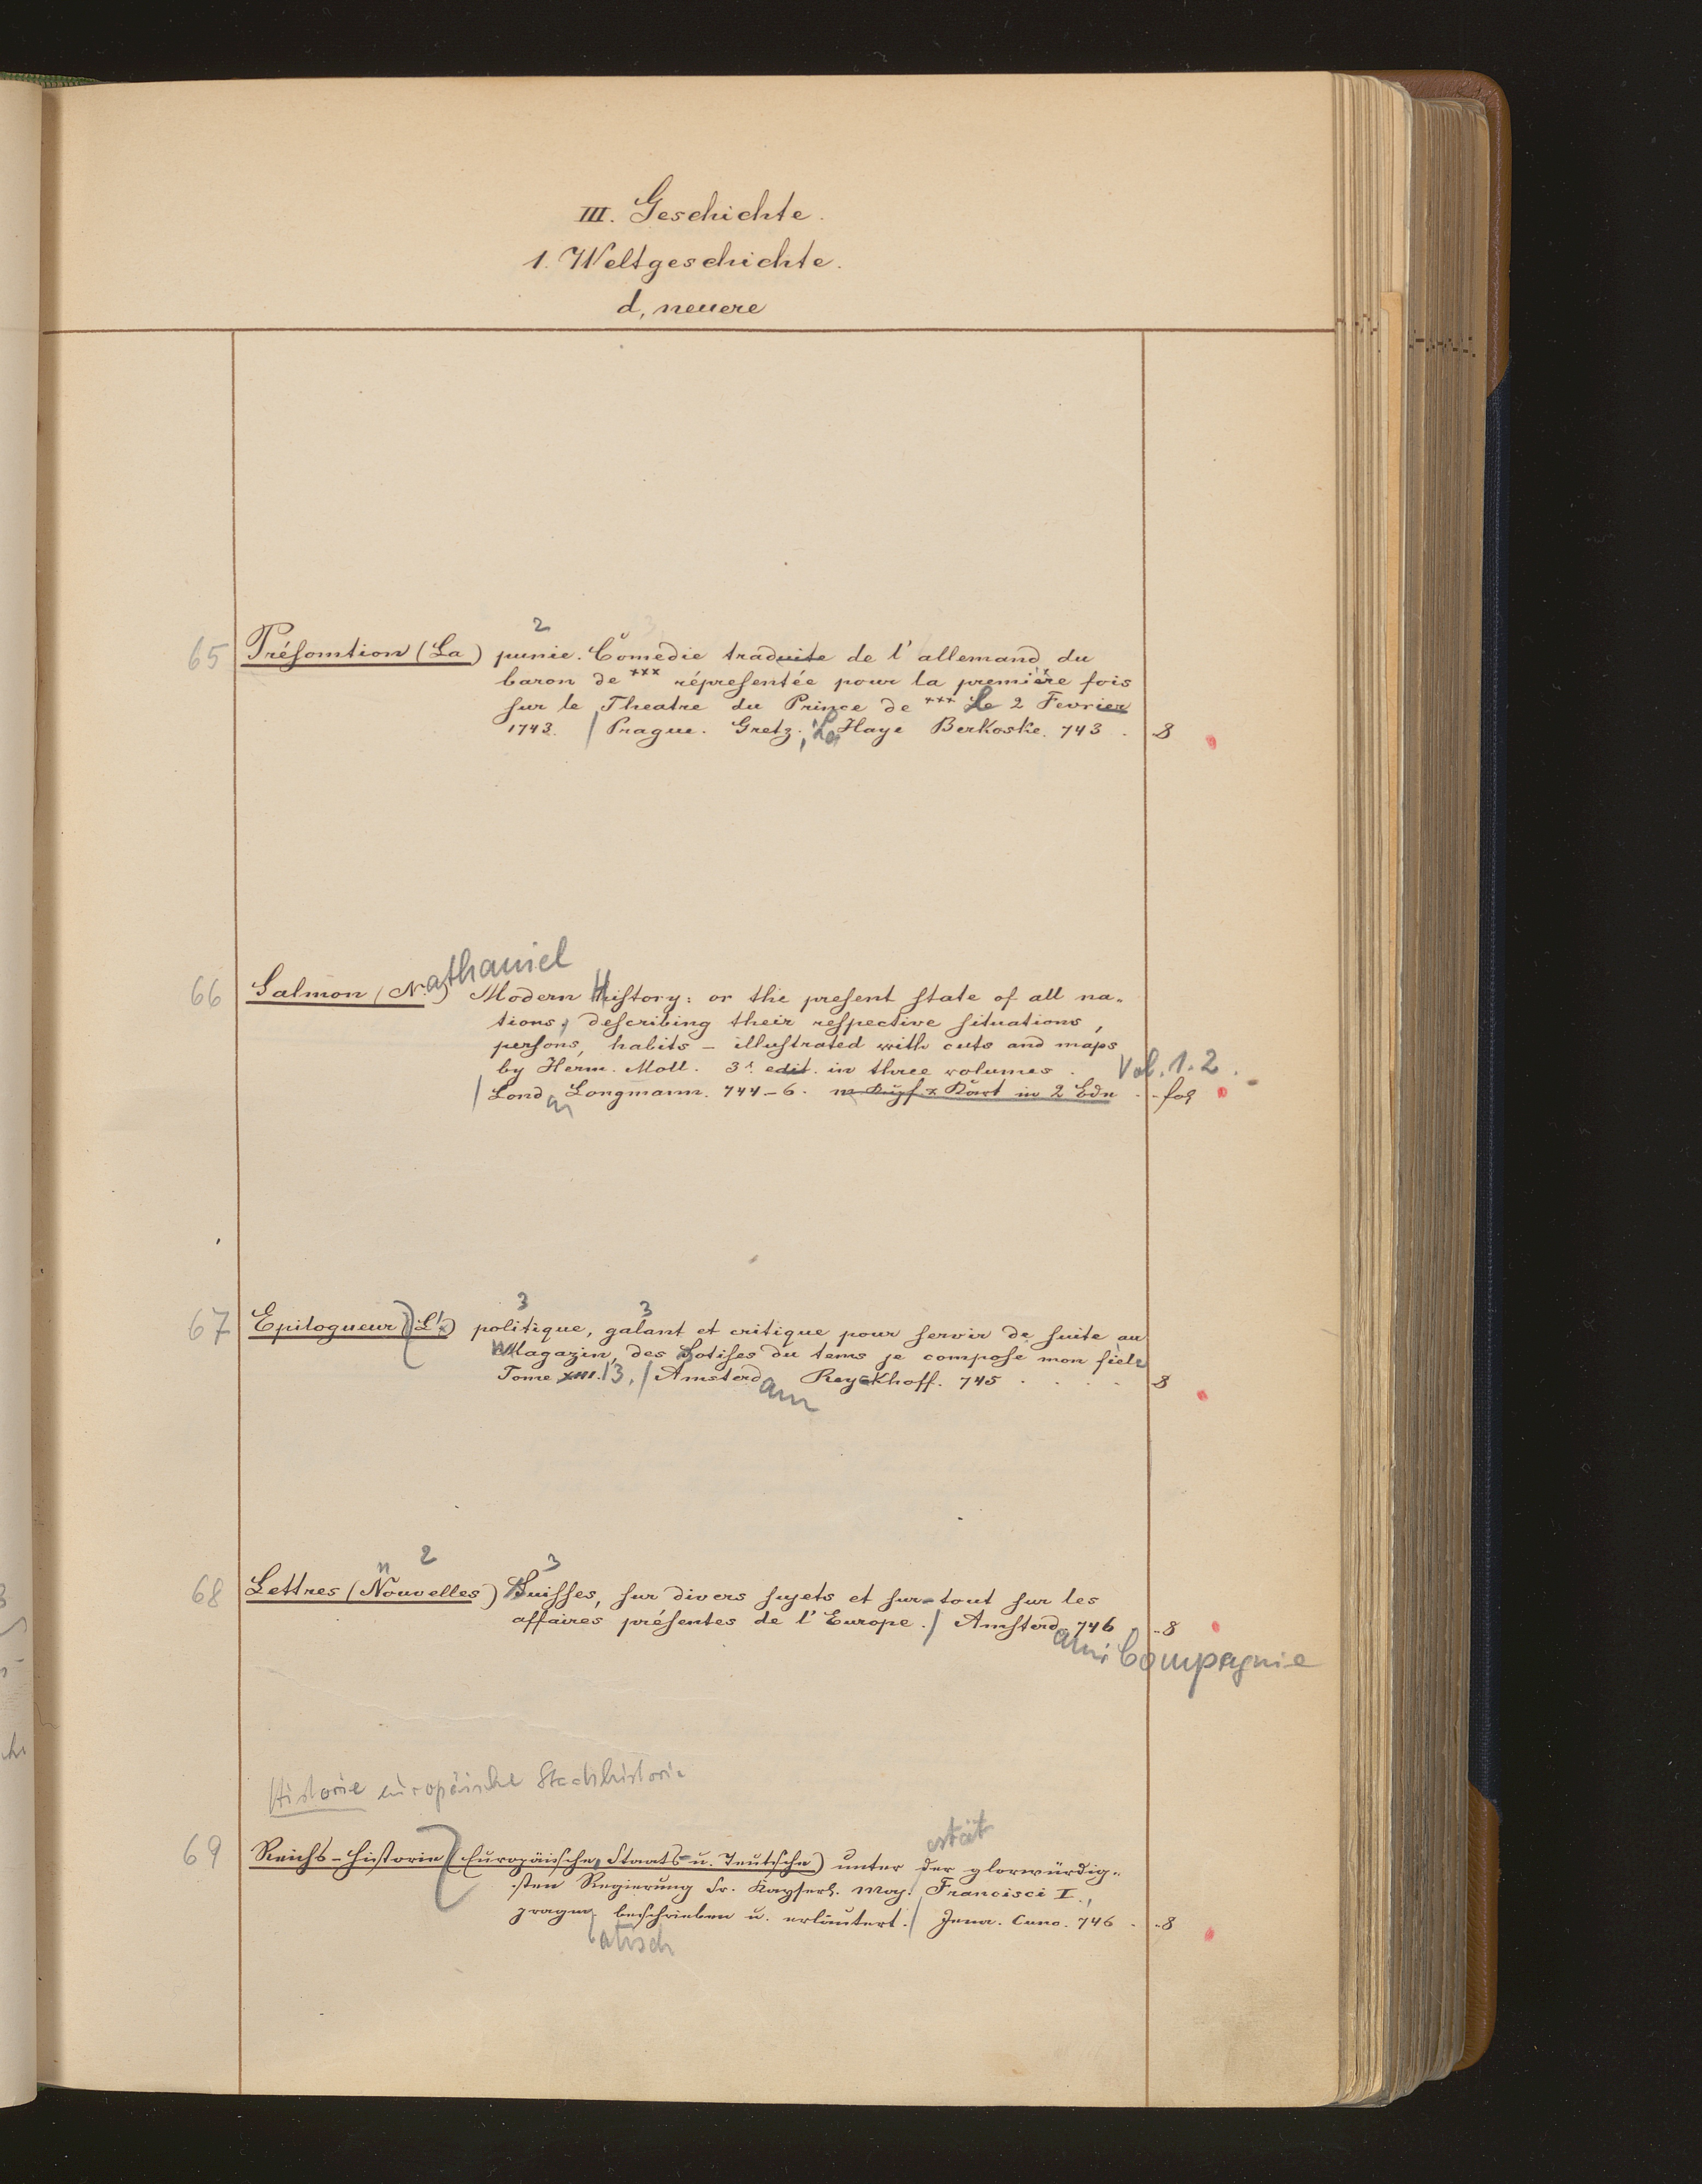 III. Geschichte.
1. Weltgeschichte.
d, neuere
2
65 Présomtion (La) punie. Comedie traduite de l'allemand du
baron de *** répresentée pour la première fois
sur le Theatre du Prince de *** Le 2 Fevrier
1743. / Prague. Gretz; La Haye Berkoske. 743 . 8
66 Salmon (Nathaniel) Modern History: or the present state of all na-
tions, describing their respective situations,
persons, habits – illustrated with cuts and maps
by Herm. Moll. 3d. edit. in three volumes. Vol. 1. 2.
/ Lond Longmann. 744–6. m Kupf & Kart in 2 Bdn . . fol
3 3
67 Epilogueur (L') politique, galant et critique pour servir de suite au
Magazin, des Sotises du tems je compose mon fiel
Tome XIII. 13. / Amsterdam Reyckhoff. 745 . . . . 8
n 2 3
68 Lettres (Nouvelles) Suisses, sur divers sujets et sur-tout sur les
affaires présentes de l'Europe. / Amsterdam: Compagnie 746 . . 8
Historie europäische Staatshistorie
69 Reichs-Historie (Europäische Staats- u. Teutsche) unter der glorwürdig-
sten Regierung Sr. Kayserl. Majestät Francisci I.,
pragmatisch beschrieben u. erläutert. / Jena. Cuno. 746 . . 8